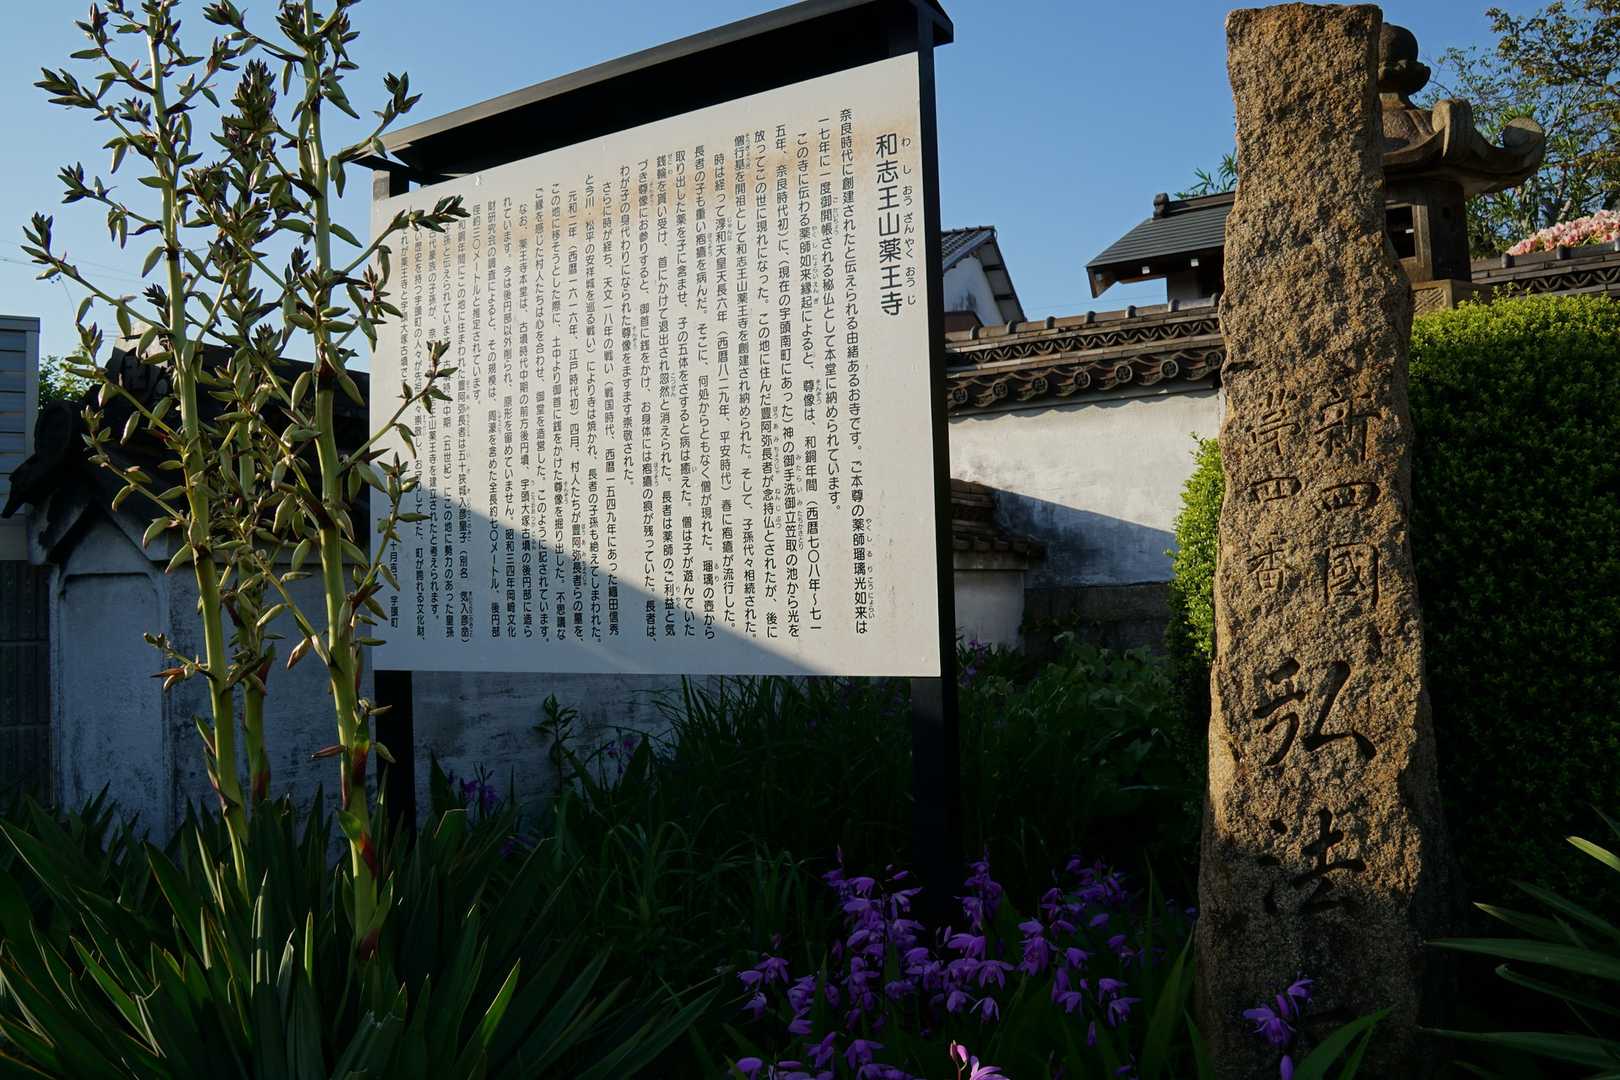 和志王山薬王寺
奈良時代に創建されたと伝えられる由緒あるお寺です。ご本尊の薬師瑠璃光如来は
一七年に一度御開帳される秘仏として本堂に納められています。
この寺に伝わる薬師如来縁起によると、尊像は、和銅年間(西暦七〇八年～七一
五年、奈良時代初)に、(現在の宇頭南町にあった)神の御手洗御立笠取の池から光を
放ってこの世に現れになった。この地に住んだ豊阿弥長者が念持仏とされたが、後に
僧行基を開祖として和志王山薬王寺を創建され納められた。そして、子孫代々相続された。
時は経って淳和天皇天長六年(西暦八二九年、平安時代)春に疱瘡が流行した。
長者の子も重い疱瘡を病んだ。そこに、何処からともなく僧が現れた。瑠璃の壺から
取り出した薬を子に含ませ、子の五体をさすると病は癒えた。僧は子が遊んでいた
銭輪を貰い受け、首にかけて退出され忽然と消えられた。長者は薬師のご利益と気
づき尊像にお参りすると、御首に銭をかけ、お身体には疱瘡の痕が残っていた。長者は、
わが子の身代わりになられた尊像をますます崇敬された。
さらに時が経ち、天文一八年の戦い(戦国時代、西暦一五四九年にあった織田信秀
と今川・松平の安祥城を巡る戦い)により寺は焼かれ、長者の子孫も絶えてしまわれた。
元和二年(西暦一六一六年、江戸時代初)四月、村人たちが豊阿弥長者らの墓を、
この地に移そうとした際に、土中より御首に銭をかけた尊像を掘り出した。不思議な
ご縁を感じた村人たちは心を合わせ、御堂を造営した。このように記されています。
なお、薬王寺本堂は、古墳時代中期の前方後円墳、宇頭大塚古墳の後円部に造ら
れています。今は後円部以外削られ、原形を留めていません。昭和三四年岡崎文化
財研究会の調査によると、その規模は、周濠を含めた全長約七〇メートル、後円部
径約三〇メートルと推定されています。
和銅年間にこの地に住まわれた豊阿弥長者は五十狭城入彦皇子(別名 気入彦命)
子孫と伝えられています。
時代中期(五世紀)にこの地に勢力のあった皇孫
古代豪族の子孫が、奈
王山薬王寺を建立されたと考えられます。
い歴史を持つ宇頭町の人々が先祖
々崇敬し、お
してきた、町が誇れる文化財、
れが薬王寺と宇頭大塚古墳で
十月吉
宇頭町
新四國
第四番
弘法